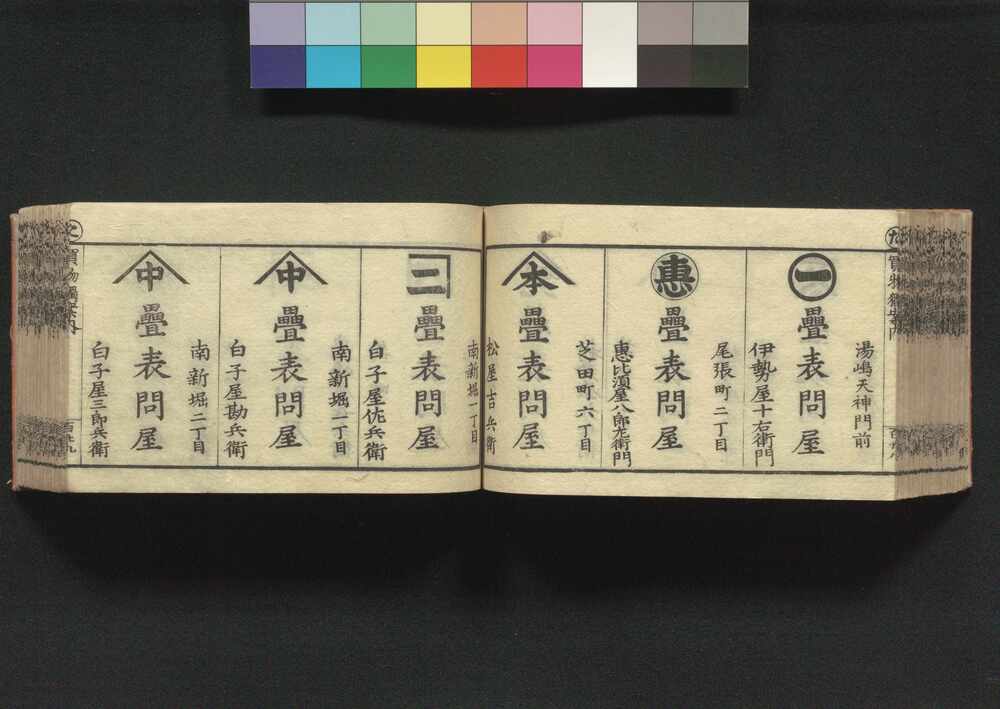 湯嶋天神門前
一
疊表問屋
伊勢屋十右衛門
尾張町二丁目
惠
疊表問屋
惠比須屋八郎左衛門
芝田町六丁目
本
疊表問屋
松屋吉兵衛
南新堀一丁目
二
疊表問屋
白子屋佐兵衛
南新堀一丁目
中
疊表問屋
白子屋勘兵衛
南新堀二丁目
中
疊表問屋
白子屋三郎兵衛